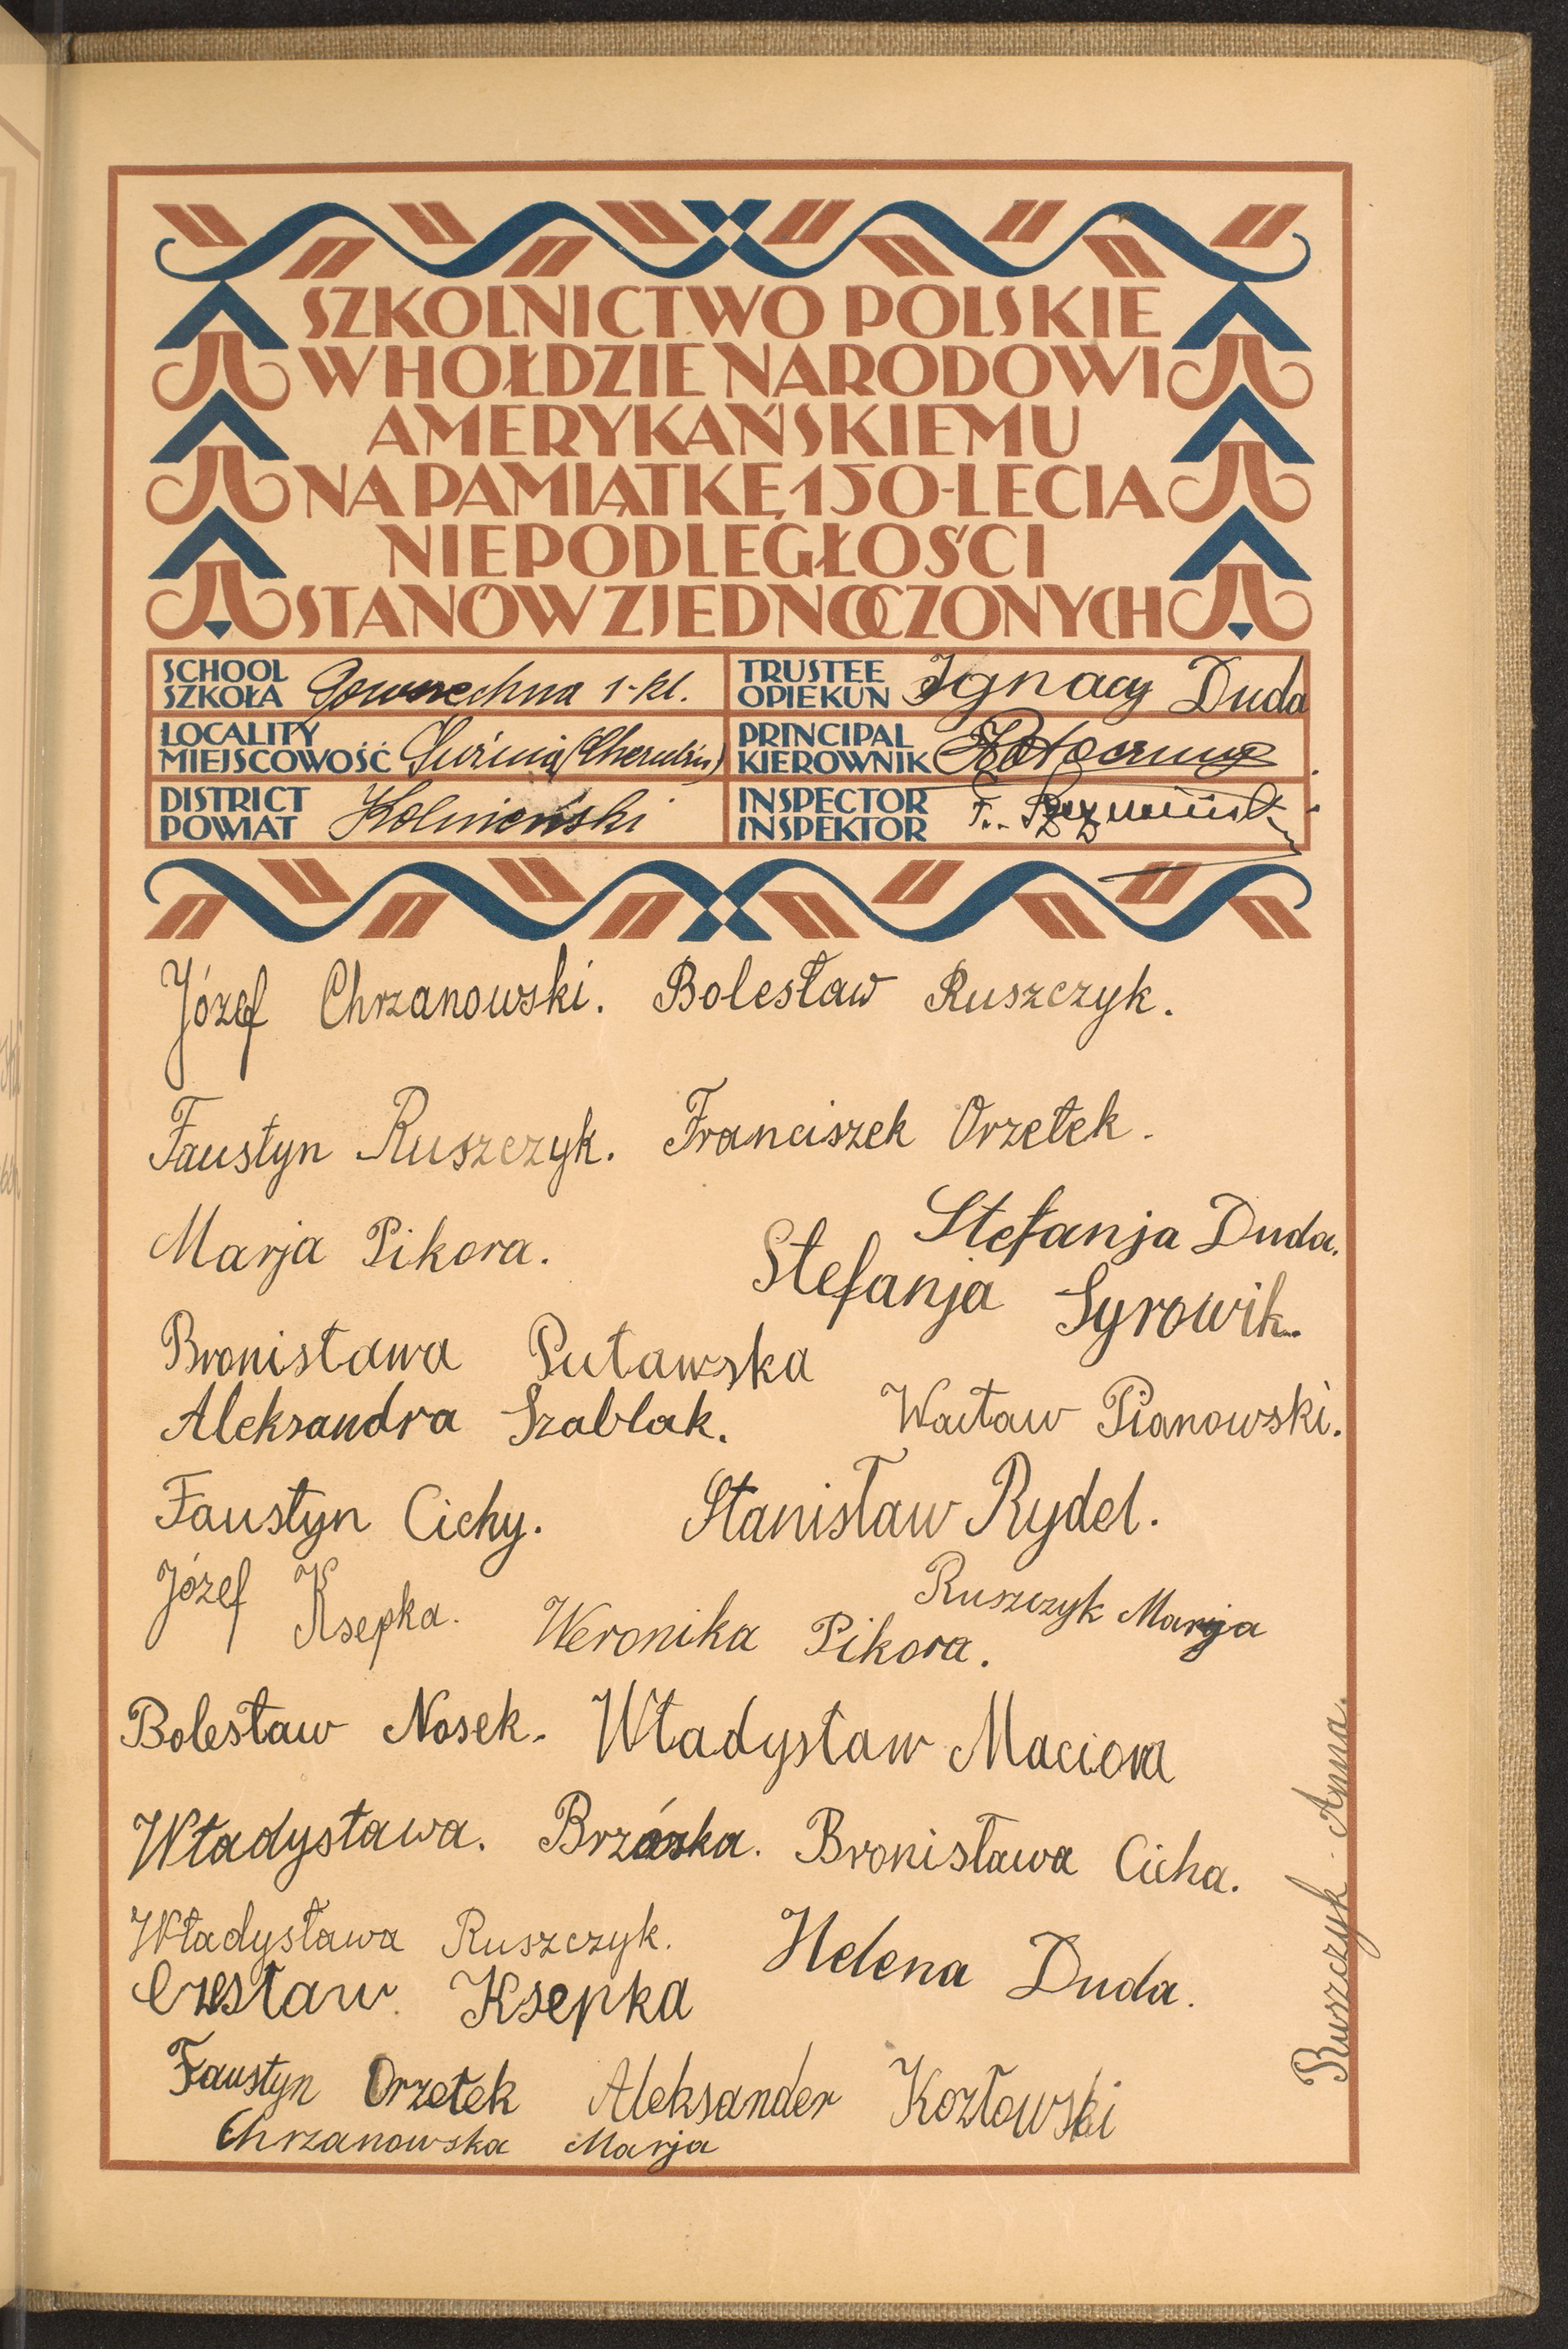 SZKOLNICTWO POLSKIE
W HOŁDZIE NARODOWI
AMERYKAŃSKIEMU
NA PAMIĄTKĘ 150-LECIA
NIEPODLEGŁOŚCI
STANÓW ZJEDNOCZONYCH
SCHOOL
SZKOŁA Powszechna 1-kl.
TRUSTEE
OPIEKUN Ignacy Duda
LOCALITY
MIEJSCOWOŚĆ
PRINCIPAL
KIEROWNIK
DISTRICT
POWIAT Kolneński
INSPECTOR
INSPEKTOR
Józef Chrzanowski. Bolesław Ruszczyk.
Faustyn Ruszczyk. Franciszek Orzełek.
Marja Pikora. Stefanja Duda.
Stefanja Syrowik.
Bronisława Puławska
Aleksandra Szablak. Wacław Pianowski.
Faustyn Cichy. Stanisław Rydel.
Józef Ksepka. Ruszczyk Marja
Weronika Pikora.
Bolesław Nosek. Władysław Maciora
Władysława. Brzózka. Bronisława Cicha.
Władysława Ruszczyk. Helena Duda.
Czesław Ksepka
Faustyn Orzełek Aleksander Kozłowski
Chrzanowska Marja
Ruszczyk Anna.